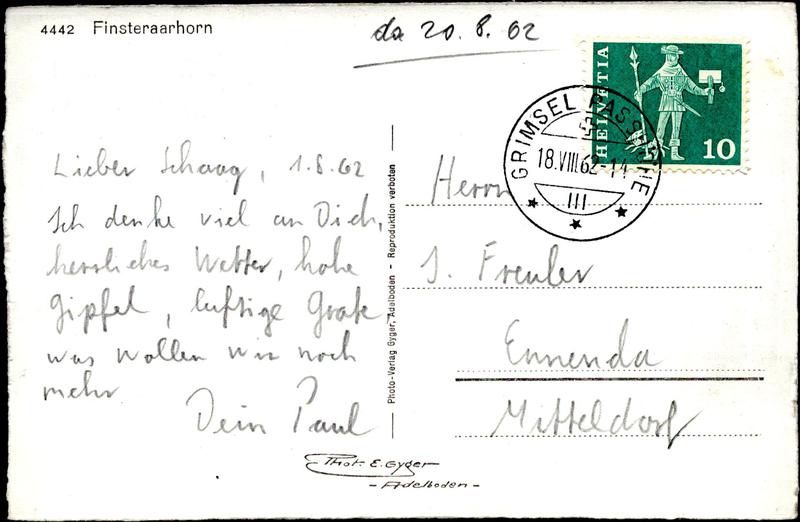 4442 Finsteraarhorn
da 20. 8. 62
HELVETIA
10
GRIMSEL PASSHÖHE
18.VIII.62-14
III
Lieber Schaag, 1.8.62
Ich denke viel an Dich,
herrliches Wetter, hohe
Gipfel, luftige Grate
was wollen wir noch
mehr
Dein Paul
Photo-Verlag Gyger, Adelboden - Reproduktion verboten
Herrn
J. Freuler
Ennenda
Mitteldorf
Phot. E. Gyger
- Adelboden -